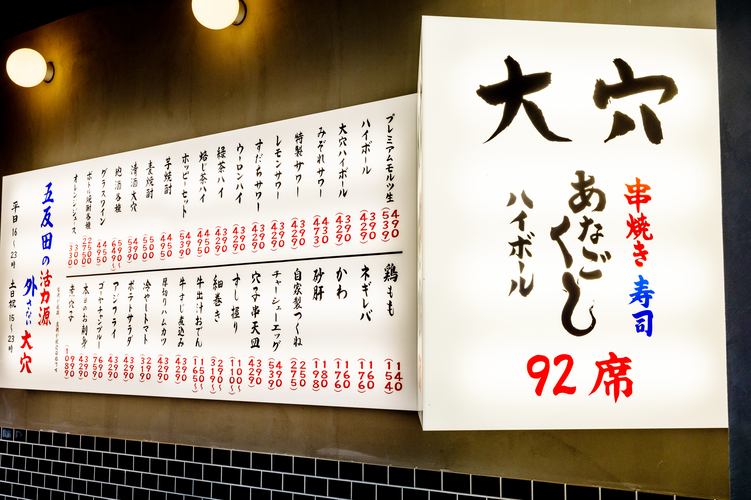 大穴
串焼き 寿司
あなごくし
ハイボール
92席
プレミアムモルツ生 490 (539)
ハイボール 390 (429)
大穴ハイボール 390 (429)
みぞれサワー 430 (473)
特製サワー 390 (429)
レモンサワー 390 (429)
すだちサワー 390 (429)
ウーロンハイ 390 (429)
緑茶ハイ 390 (429)
焙じ茶ハイ
ホッピーセット 450 (495)
芋焼酎
麦焼酎
清酒大穴
地酒各種
グラスワイン 450 (495)
ボトル焼酎各種
オレンジジュース 300 (330)
鶏もも 140 (154)
ネギレバ 160 (176)
かわ 160 (176)
砂肝 180 (198)
自家製つくね 250 (275)
チャーシューエッグ 490 (539)
穴子串天皿 390 (429)
すし 握り 100〜 (110〜)
細巻き 290〜 (319〜)
牛出汁おでん 150〜 (165〜)
牛すじ煮込み 390 (429)
厚切りハムカツ 390 (429)
冷やしトマト 290 (319)
ポテトサラダ 390 (429)
アジフライ 390 (429)
ゴーヤチャンプルー 690 (759)
本日のお刺身 390 (429)
煮穴子 990 (1089)
五反田の活力源
外さない大穴
平日16〜23時 土日祝15〜23時